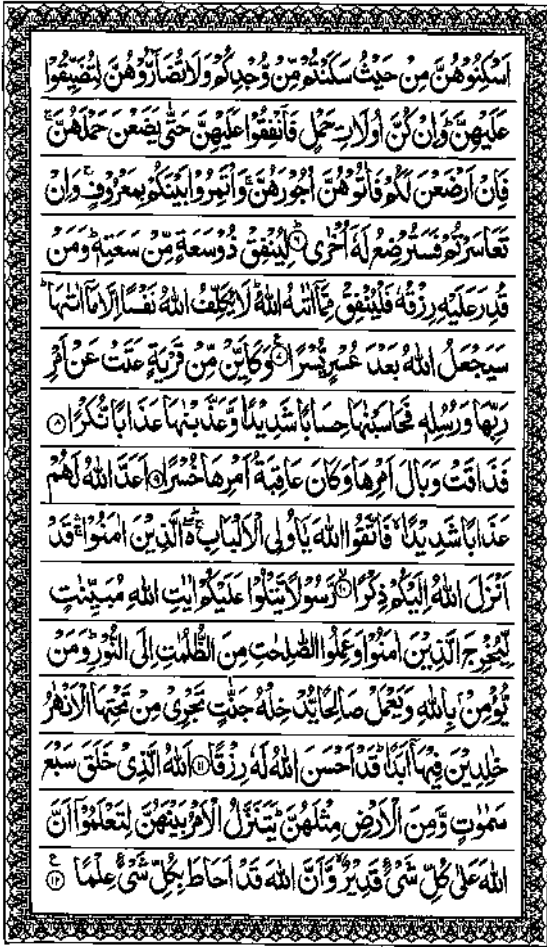 اَسْكِنُوْهُنَّ مِنْ حَيْثُ سَكَنْتُمْ مِّنْ وُّجْدِكُمْ وَلَا تُضَآرُّوْهُنَّ لِتُضَيِّقُوْا
عَلَيْهِنَّ ؕ وَاِنْ كُنَّ اُولَاتِ حَمْلٍ فَاَنْفِقُوْا عَلَيْهِنَّ حَتّٰى يَضَعْنَ حَمْلَهُنَّ ۚ
فَاِنْ اَرْضَعْنَ لَكُمْ فَاٰتُوْهُنَّ اُجُوْرَهُنَّ ۚ وَاْتَمِرُوْا بَيْنَكُمْ بِمَعْرُوْفٍ ۚ وَاِنْ
تَعَاسَرْتُمْ فَسَتُرْضِعُ لَهٗۤ اُخْرٰى ؕ‏﴿۶﴾ لِيُنْفِقْ ذُوْ سَعَةٍ مِّنْ سَعَتِهٖ ؕ وَمَنْ
قُدِرَ عَلَيْهِ رِزْقُهٗ فَلْيُنْفِقْ مِمَّاۤ اٰتٰىهُ اللّٰهُ ؕ لَا يُكَلِّفُ اللّٰهُ نَفْسًا اِلَّا مَاۤ اٰتٰىهَا ؕ
سَيَجْعَلُ اللّٰهُ بَعْدَ عُسْرٍ يُّسْرًا ﴿۷﴾ وَكَاَيِّنْ مِّنْ قَرْيَةٍ عَتَتْ عَنْ اَمْرِ
رَبِّهَا وَرُسُلِهٖ فَحَاسَبْنٰهَا حِسَابًا شَدِيْدًا وَّعَذَّبْنٰهَا عَذَابًا نُّكْرًا ﴿۸﴾
فَذَاقَتْ وَبَالَ اَمْرِهَا وَكَانَ عَاقِبَةُ اَمْرِهَا خُسْرًا ﴿۹﴾ اَعَدَّ اللّٰهُ لَهُمْ
عَذَابًا شَدِيْدًا ۙ فَاتَّقُوا اللّٰهَ يٰۤاُولِى الْاَلْبَابِ ۛۚ الَّذِيْنَ اٰمَنُوْا ۛؕ قَدْ
اَنْزَلَ اللّٰهُ اِلَيْكُمْ ذِكْرًا ۙ﴿۱۰﴾ رَّسُوْلًا يَّتْلُوْا عَلَيْكُمْ اٰيٰتِ اللّٰهِ مُبَيِّنٰتٍ
لِّيُخْرِجَ الَّذِيْنَ اٰمَنُوْا وَعَمِلُوا الصّٰلِحٰتِ مِنَ الظُّلُمٰتِ اِلَى النُّوْرِ ؕ وَمَنْ
يُّؤْمِنْۢ بِاللّٰهِ وَيَعْمَلْ صَالِحًا يُّدْخِلْهُ جَنّٰتٍ تَجْرِىْ مِنْ تَحْتِهَا الْاَنْهٰرُ
خٰلِدِيْنَ فِيْهَاۤ اَبَدًا ؕ قَدْ اَحْسَنَ اللّٰهُ لَهٗ رِزْقًا ﴿۱۱﴾ اَللّٰهُ الَّذِىْ خَلَقَ سَبْعَ
سَمٰوٰتٍ وَّمِنَ الْاَرْضِ مِثْلَهُنَّ ؕ يَتَنَزَّلُ الْاَمْرُ بَيْنَهُنَّ لِتَعْلَمُوْۤا اَنَّ
اللّٰهَ عَلٰى كُلِّ شَىْءٍ قَدِيْرٌ ۙ وَّاَنَّ اللّٰهَ قَدْ اَحَاطَ بِكُلِّ شَىْءٍ عِلْمًا ﴿۱۲﴾ ع